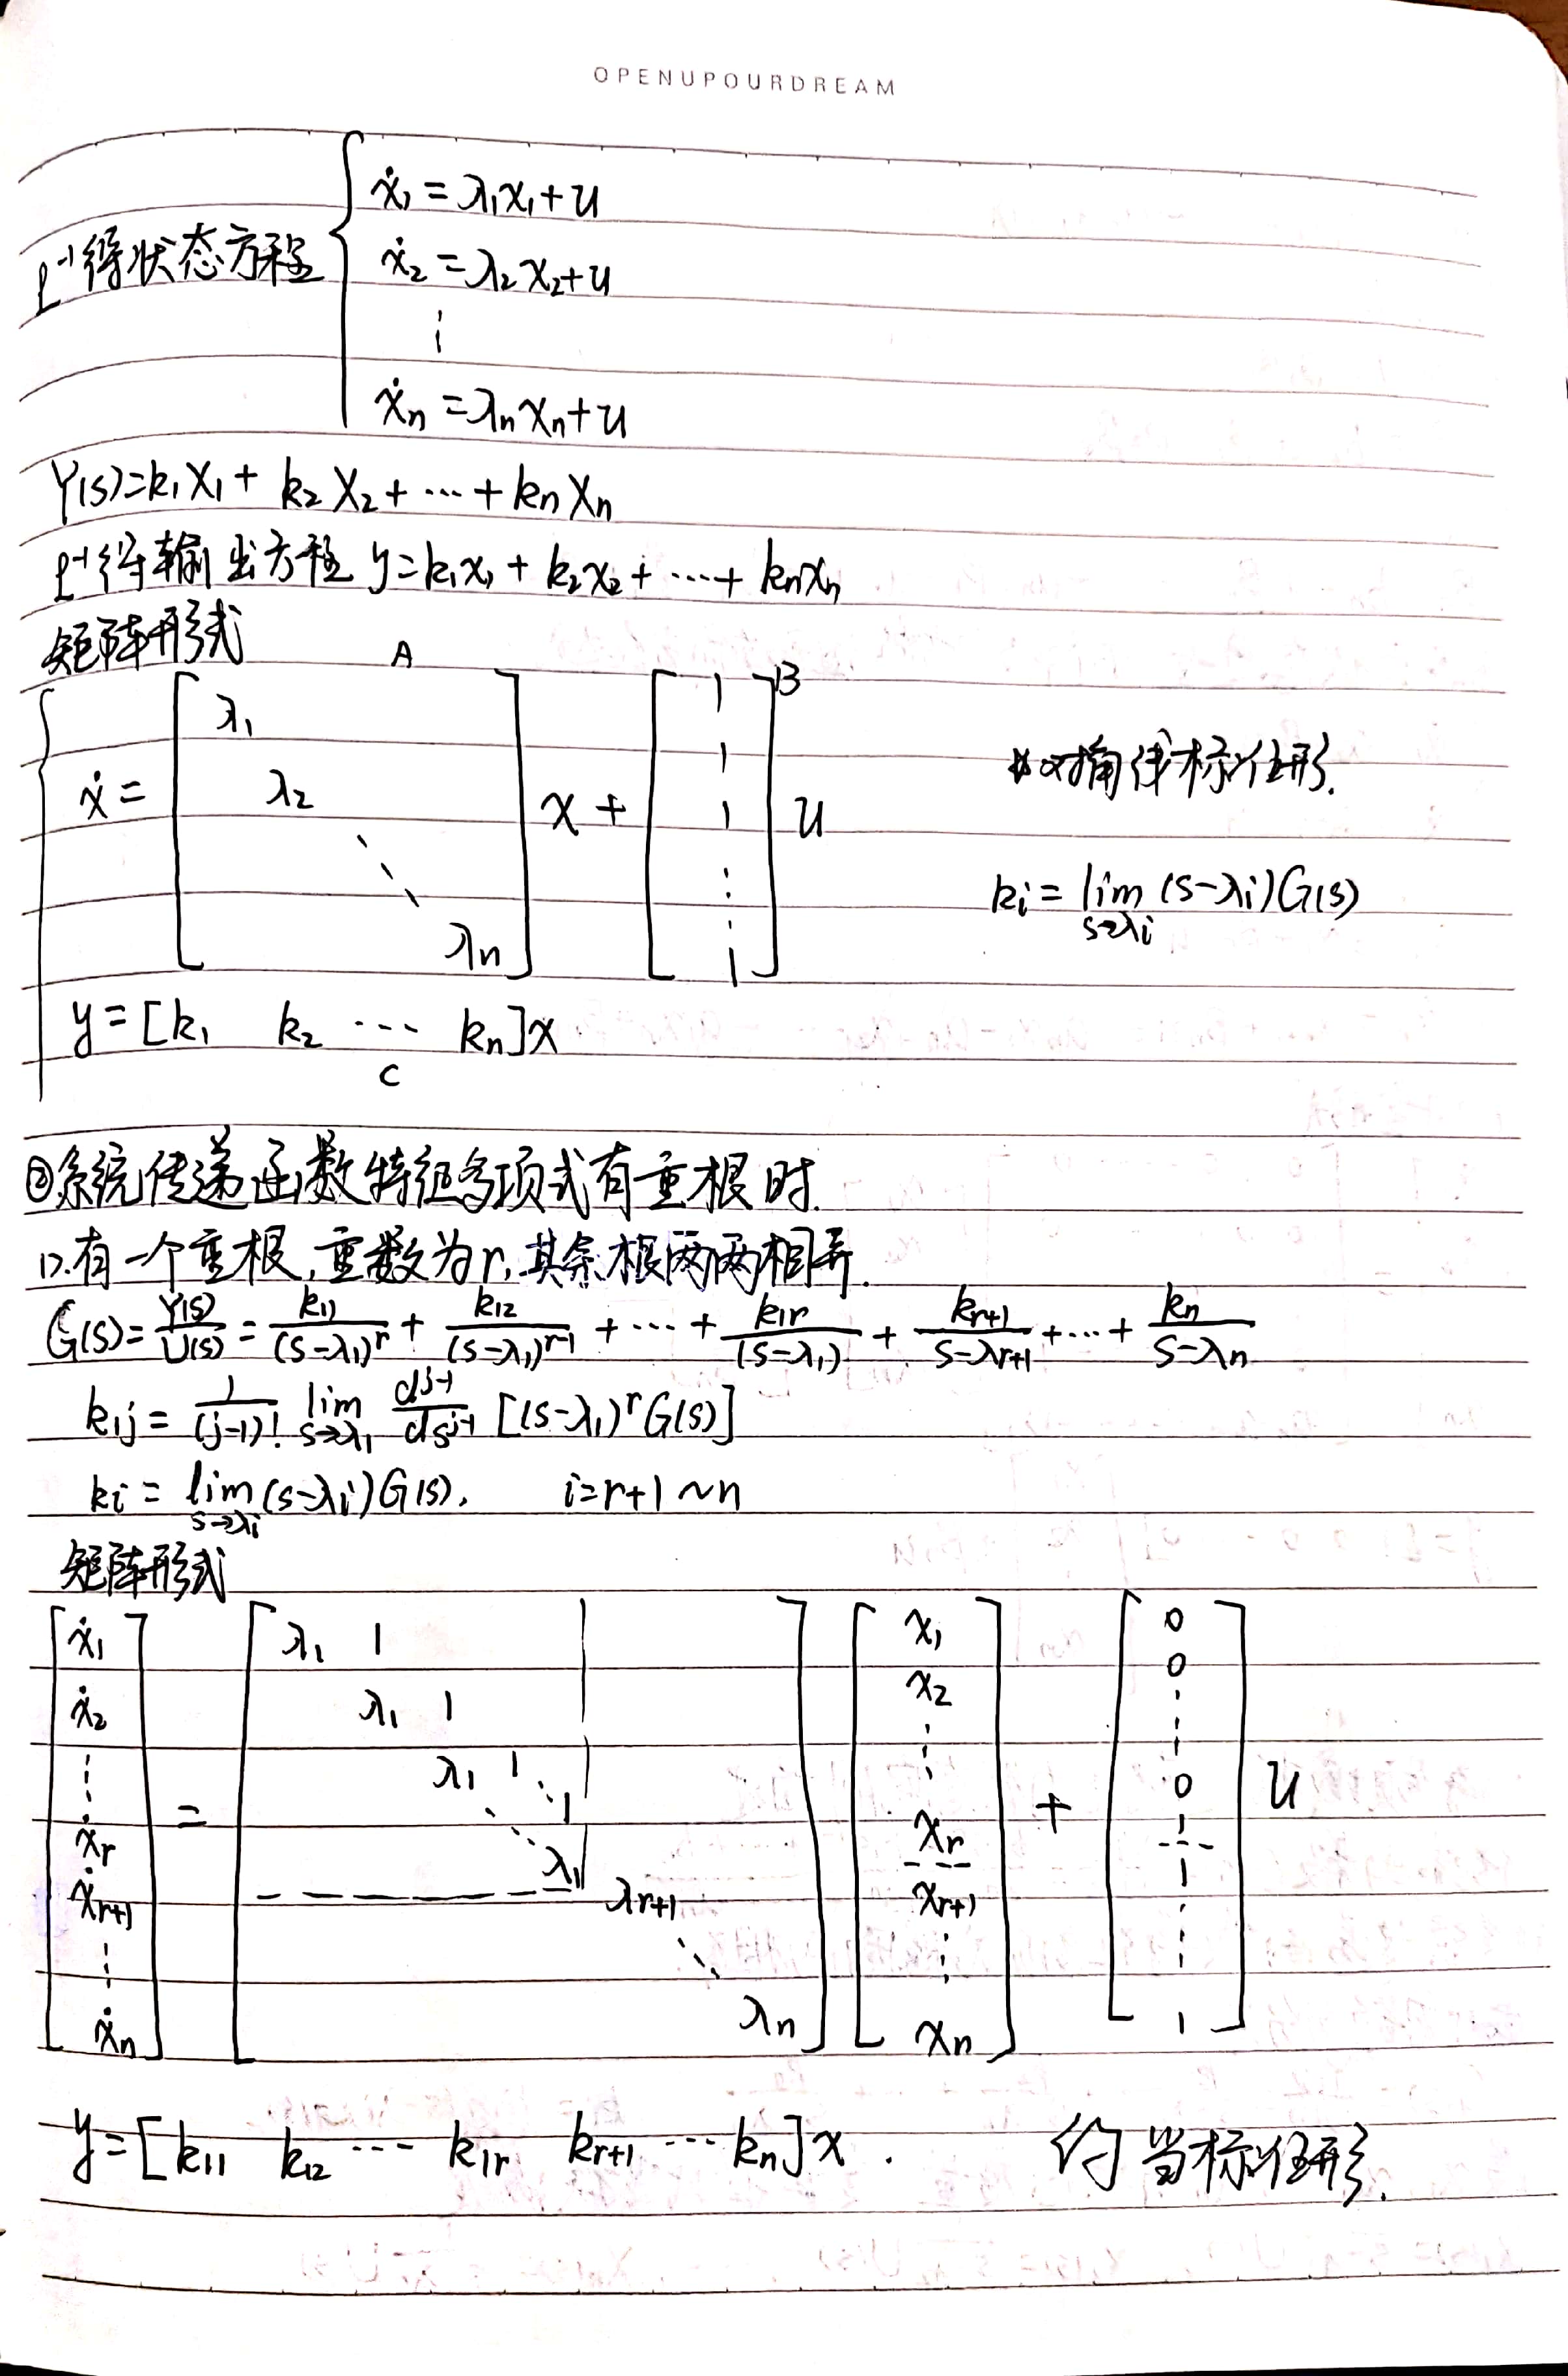 OPENUPOURDREAM
ẋ₁ = λ₁x₁+u
L⁻¹得状态方程 ẋ₂ = λ₂x₂+u
⋮
ẋn = λnxn+u
Y(s)=k₁X₁ + k₂X₂ + ⋯ + knXn
L⁻¹得输出方程 y=k₁x₁ + k₂x₂ + ⋯ + knxn
矩阵形式
A B
ẋ = [λ₁ λ₂ ⋱ λn] x + [1 1 1 ⋮ 1] u
对角线标准形.
ki = lim s→λi (s-λi)G(s)
y = [k₁ k₂ ⋯ kn]x
C
②系统传递函数特征多项式有重根时.
1).有一个重根,重数为r,其余根两两相异.
G(s)=Y(s)/U(s) = k₁₁/(s-λ₁)^r + k₁₂/(s-λ₁)^(r-1) + ⋯ + k₁r/(s-λ₁) + kr+1/(s-λr+1) + ⋯ + kn/(s-λn)
k₁j = 1/(j-1)! lim s→λ₁ d^(j-1)/ds^(j-1) [(s-λ₁)^r G(s)]
ki = lim s→λi (s-λi)G(s), i=r+1~n
矩阵形式
[ẋ₁ ẋ₂ ⋮ ẋr ẋr+1 ⋮ ẋn] = [λ₁ 1 λ₁ 1 λ₁ 1 ⋱ 1 ⋱ λ₁ λr+1 ⋱ λn] [x₁ x₂ ⋮ xr xr+1 ⋮ xn] + [0 0 ⋮ 0 1 1 ⋮ 1] u
y=[k₁₁ k₁₂ ⋯ k₁r kr+1 ⋯ kn]x. 约当标准形.